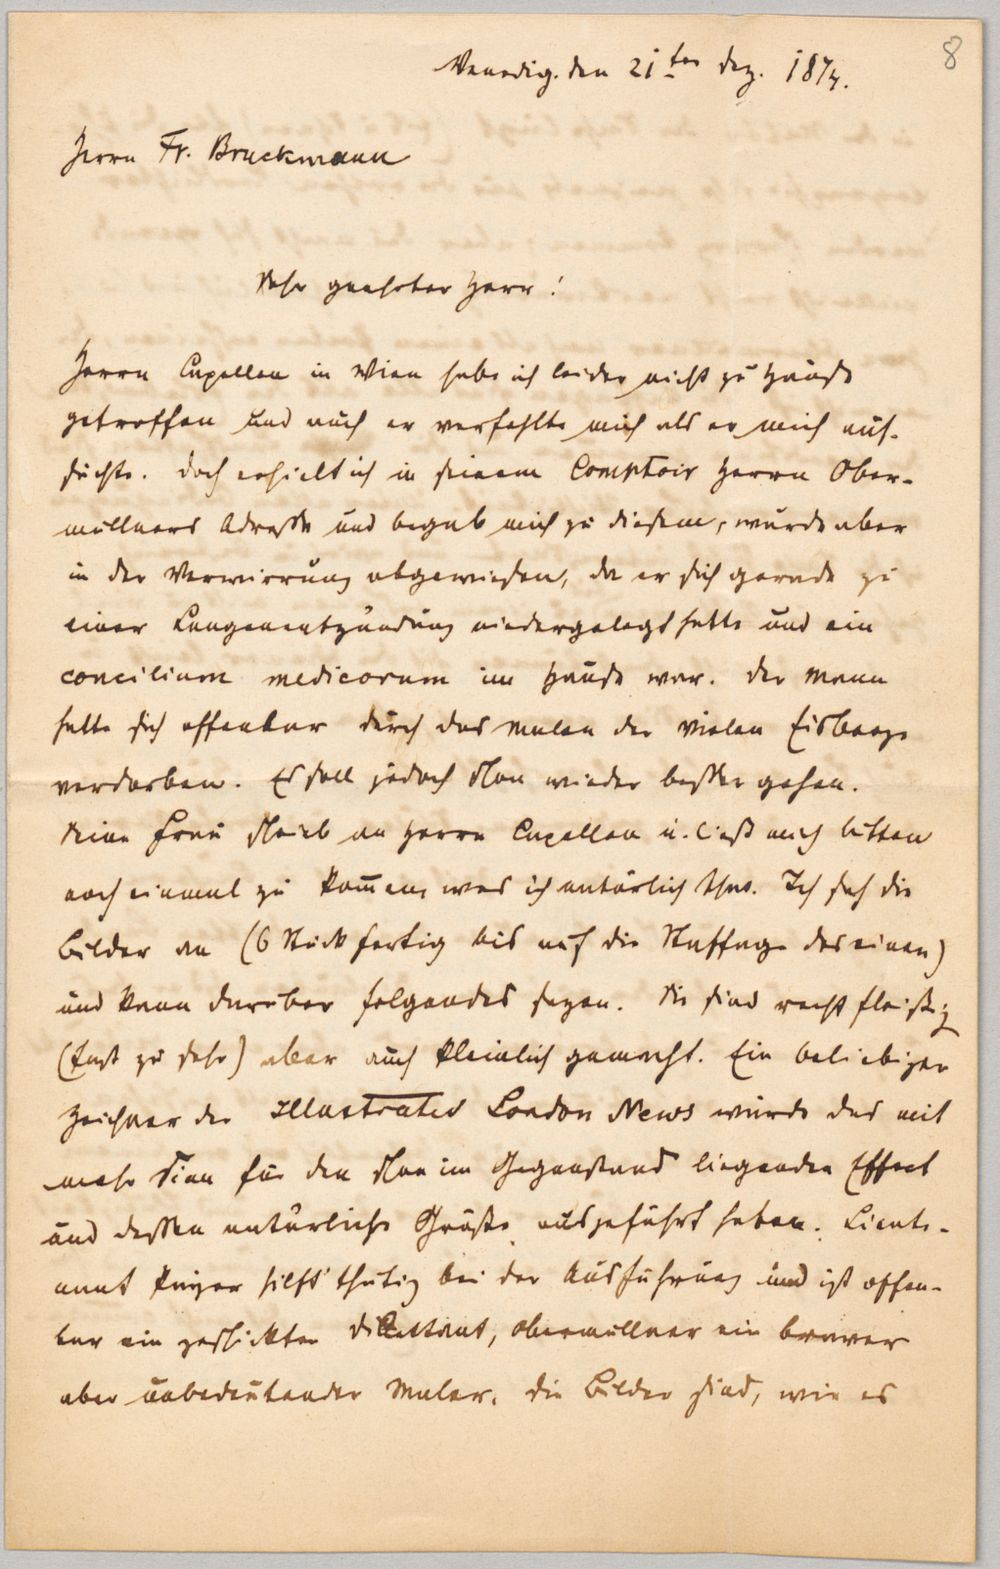 8
Venedig. den 21ten Dez. 1874.
Herrn Fr. Bruckmann
Sehr geehrter Herr!
Herrn Capellen in Wien habe ich leider nicht zu Hause
getroffen und auch er verfehlte mich als er mich auf-
suchte. Doch erhielt ich in seinem Comptoir Herrn Ober-
müllners Adresse und begab mich zu diesem, wurde aber
in der Verwirrung abgewiesen, da er sich gerade zu
einer Lungenentzündung niedergelegt hatte und ein
concilium medicorum im Hause war. Der Mann
hatte sich offenbar durch das Malen der vielen Eisberge
verdorben. Es soll jedoch schon wieder besser gehen.
Seine Frau schrieb an Herrn Capellen u. ließ mich bitten
noch einmal zu kommen, was ich natürlich that. Ich sah die
Bilder an (6 Stück fertig bis auf die Staffage des einen)
und kann darüber folgendes sagen. Sie sind recht fleißig
(fast zu sehr) aber auch kleinlich gemacht. Ein beliebiger
Zeichner der Illustrated London News würde das mit
mehr Sinn für den schon im Gegenstand liegenden Effect
und dessen natürliche Größe ausgeführt haben. Lieute-
nant Payer hilft thätig bei der Ausführung und ist offen-
bar ein geschickter Dilettant, Obermüllner ein braver
aber unbedeutender Maler. Die Bilder sind, wie es